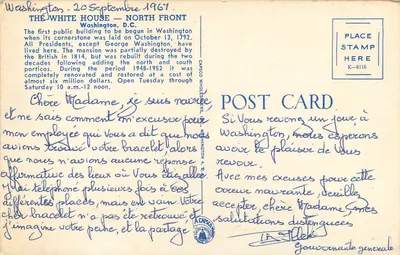 Washington - 20 Septembre 1961.
THE WHITE HOUSE — NORTH FRONT
Washington, D.C.
The first public building to be begun in Washington
when its cornerstone was laid on October 13, 1792.
All Presidents, except George Washington, have
lived here. The mansion was partially destroyed
by the British in 1814, but was rebuilt during the two
decades following adding the north and south
porticos. During the period 1948-1952 it was
completely renovated and restored at a cost of
almost six million dollars. Open Tuesday through
Saturday 10 a.m.-12 noon.
Chère Madame, je suis navrée
et ne sais comment m'excuser pour
mon employée qui vous a dit que nous
avions votre bracelet alors
que nous n'avions aucune réponse
affirmative des lieux où vous étiez allée
J'ai téléphoné plusieurs fois à ces
différentes places, mais en vain. Votre
cher bracelet n'a pas été retrouvé et
j'imagine votre peine, et la partage
PLACE
STAMP
HERE
POST CARD
Si vous revenez un jour à
Washington, nous espérons
avoir le plaisir de vous
revoir.
Avec mes excuses pour cette
erreur navrante, veuillez
accepter, chère Madame, mes
salutations distinguées
Gouvernante generale